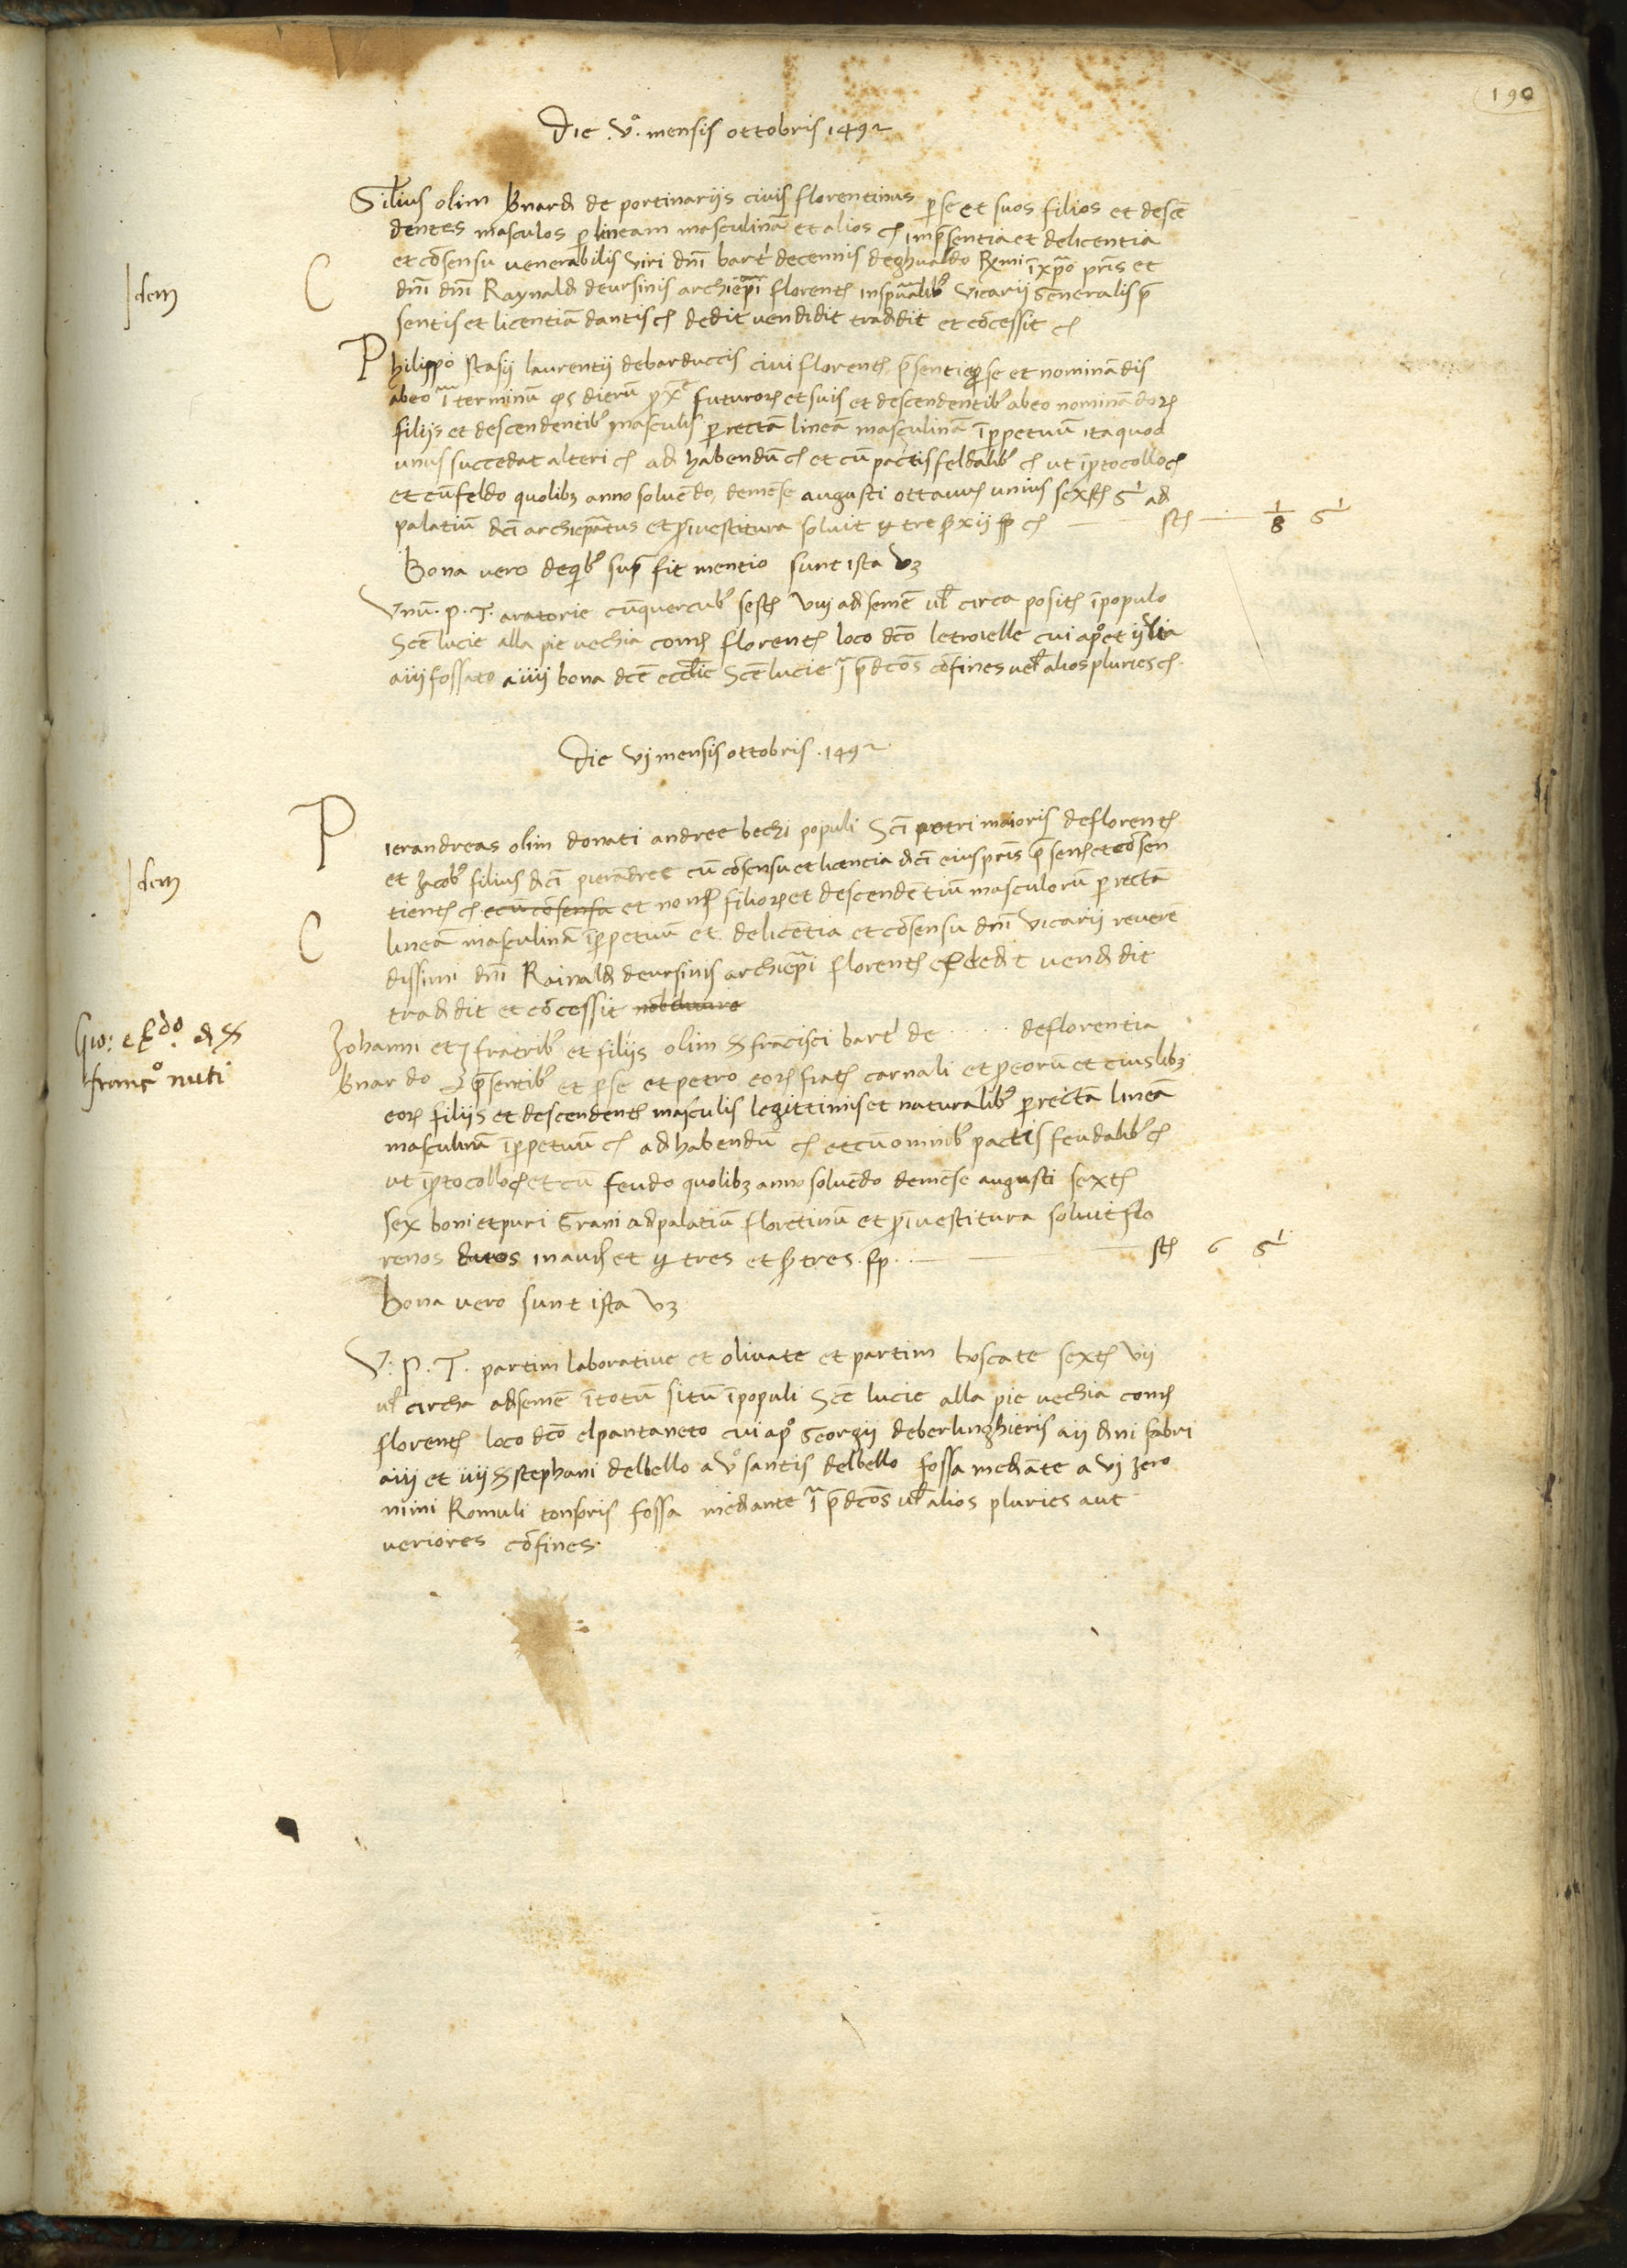 190
Die .V°. mensis ottobris 1492
Silius olim Bnardi de portinariis civis florentinus p se et suos filios et descē
dentes masculos p lineam masculinā et alios etc inpsentia et de licentia
et cōsensu venerabilis viri dni bart decennis
Idem
dni dni Raynaldi de ursinis archiepi florent in spualib vicarii generalis p
sentis et licentiā dantis etc dedit vendidit tradidit et cōcessit etc
Philippo stasii laurentii de barduccis civi florent psenti p se et nominādis
ab eo ī terminū dierū px futuror et suis et descendentib ab eo nominādor
filiis et descendentib masculis p rectā lineā masculinā īppetuū ita quod
unus succedat alteri etc ad habendū etc et cū pactis feldalib etc ut īptocollo etc
et cū feldo quolibz anno solvēdo de mēse augusti ottavus unius sext Gⁱ ad
palatiū dci archiepatus et p īvestitura solvit tre xii etc st 1/8 Gⁱ
Bona vero de qib sup fit mentio sunt ista vz
Unū . P . T . aratorie cū quercub sest viii ad semē vl circa posit ī populo
Scē lucie alla pie vechia comit florent loco dco le troielle cui a p° et ii via
a iii fossato a iiii bona dce ecclie Scē lucie ī pdcos cōfines vel alios plures etc.
Die vi mensis ottobris . 1492
Pierandreas olim donati andree bechi populi Sci petri maioris de florent
et Jacob filius dci pierādree cū cōsensu et licentia dci eius pris psent et cōsen
Idem
tient etc ecū cōsensu et filior et descendētiū masculorū p rectā
lineā masculinā īppetuū et de licētia et cōsensu dni vicarii reverē
dissimi dni Rainaldi de ursinis archiepi florent dedit vendidit
tradidit et cōcessit
Gio: e di S
franc° nuti
Johanni et fratrib et filiis olim S frācisci bart de . . . . . de florentia
Bnardo psentib et p se et petro eor frat carnali et p eorū et cuiuslibz
eor filiis et descendent masculis legittimis et naturalib p rectā lineā
masculinā īppetuū etc ad habendū etc et cū omnib pactis feudalib etc
ut īptocollo etc et cū feudo quolibz anno solvēdo de mēse augusti sext
sex boni et puri Grani ad palatiū florētinū et p īvestitura solvit flo
renos duos in et tres et tres . st 6 Gⁱ
Bona vero sunt ista vz
V . P . T . partim laborative et olivate et partim boscate sext vii
vl circha ad semē ī totū sitū ī populi Scē lucie alla pie vechia comit
florent loco dco el pantaneto cui a p° Georgii de berlinghieris a ii dini fabri
a iii et iiii S stephani del bello a v° santis del bello fossa mediāte a vi Jero
nimi Romuli tonsoris fossa mediante ī pdcos vl alios plures aut
veriores cōfines.